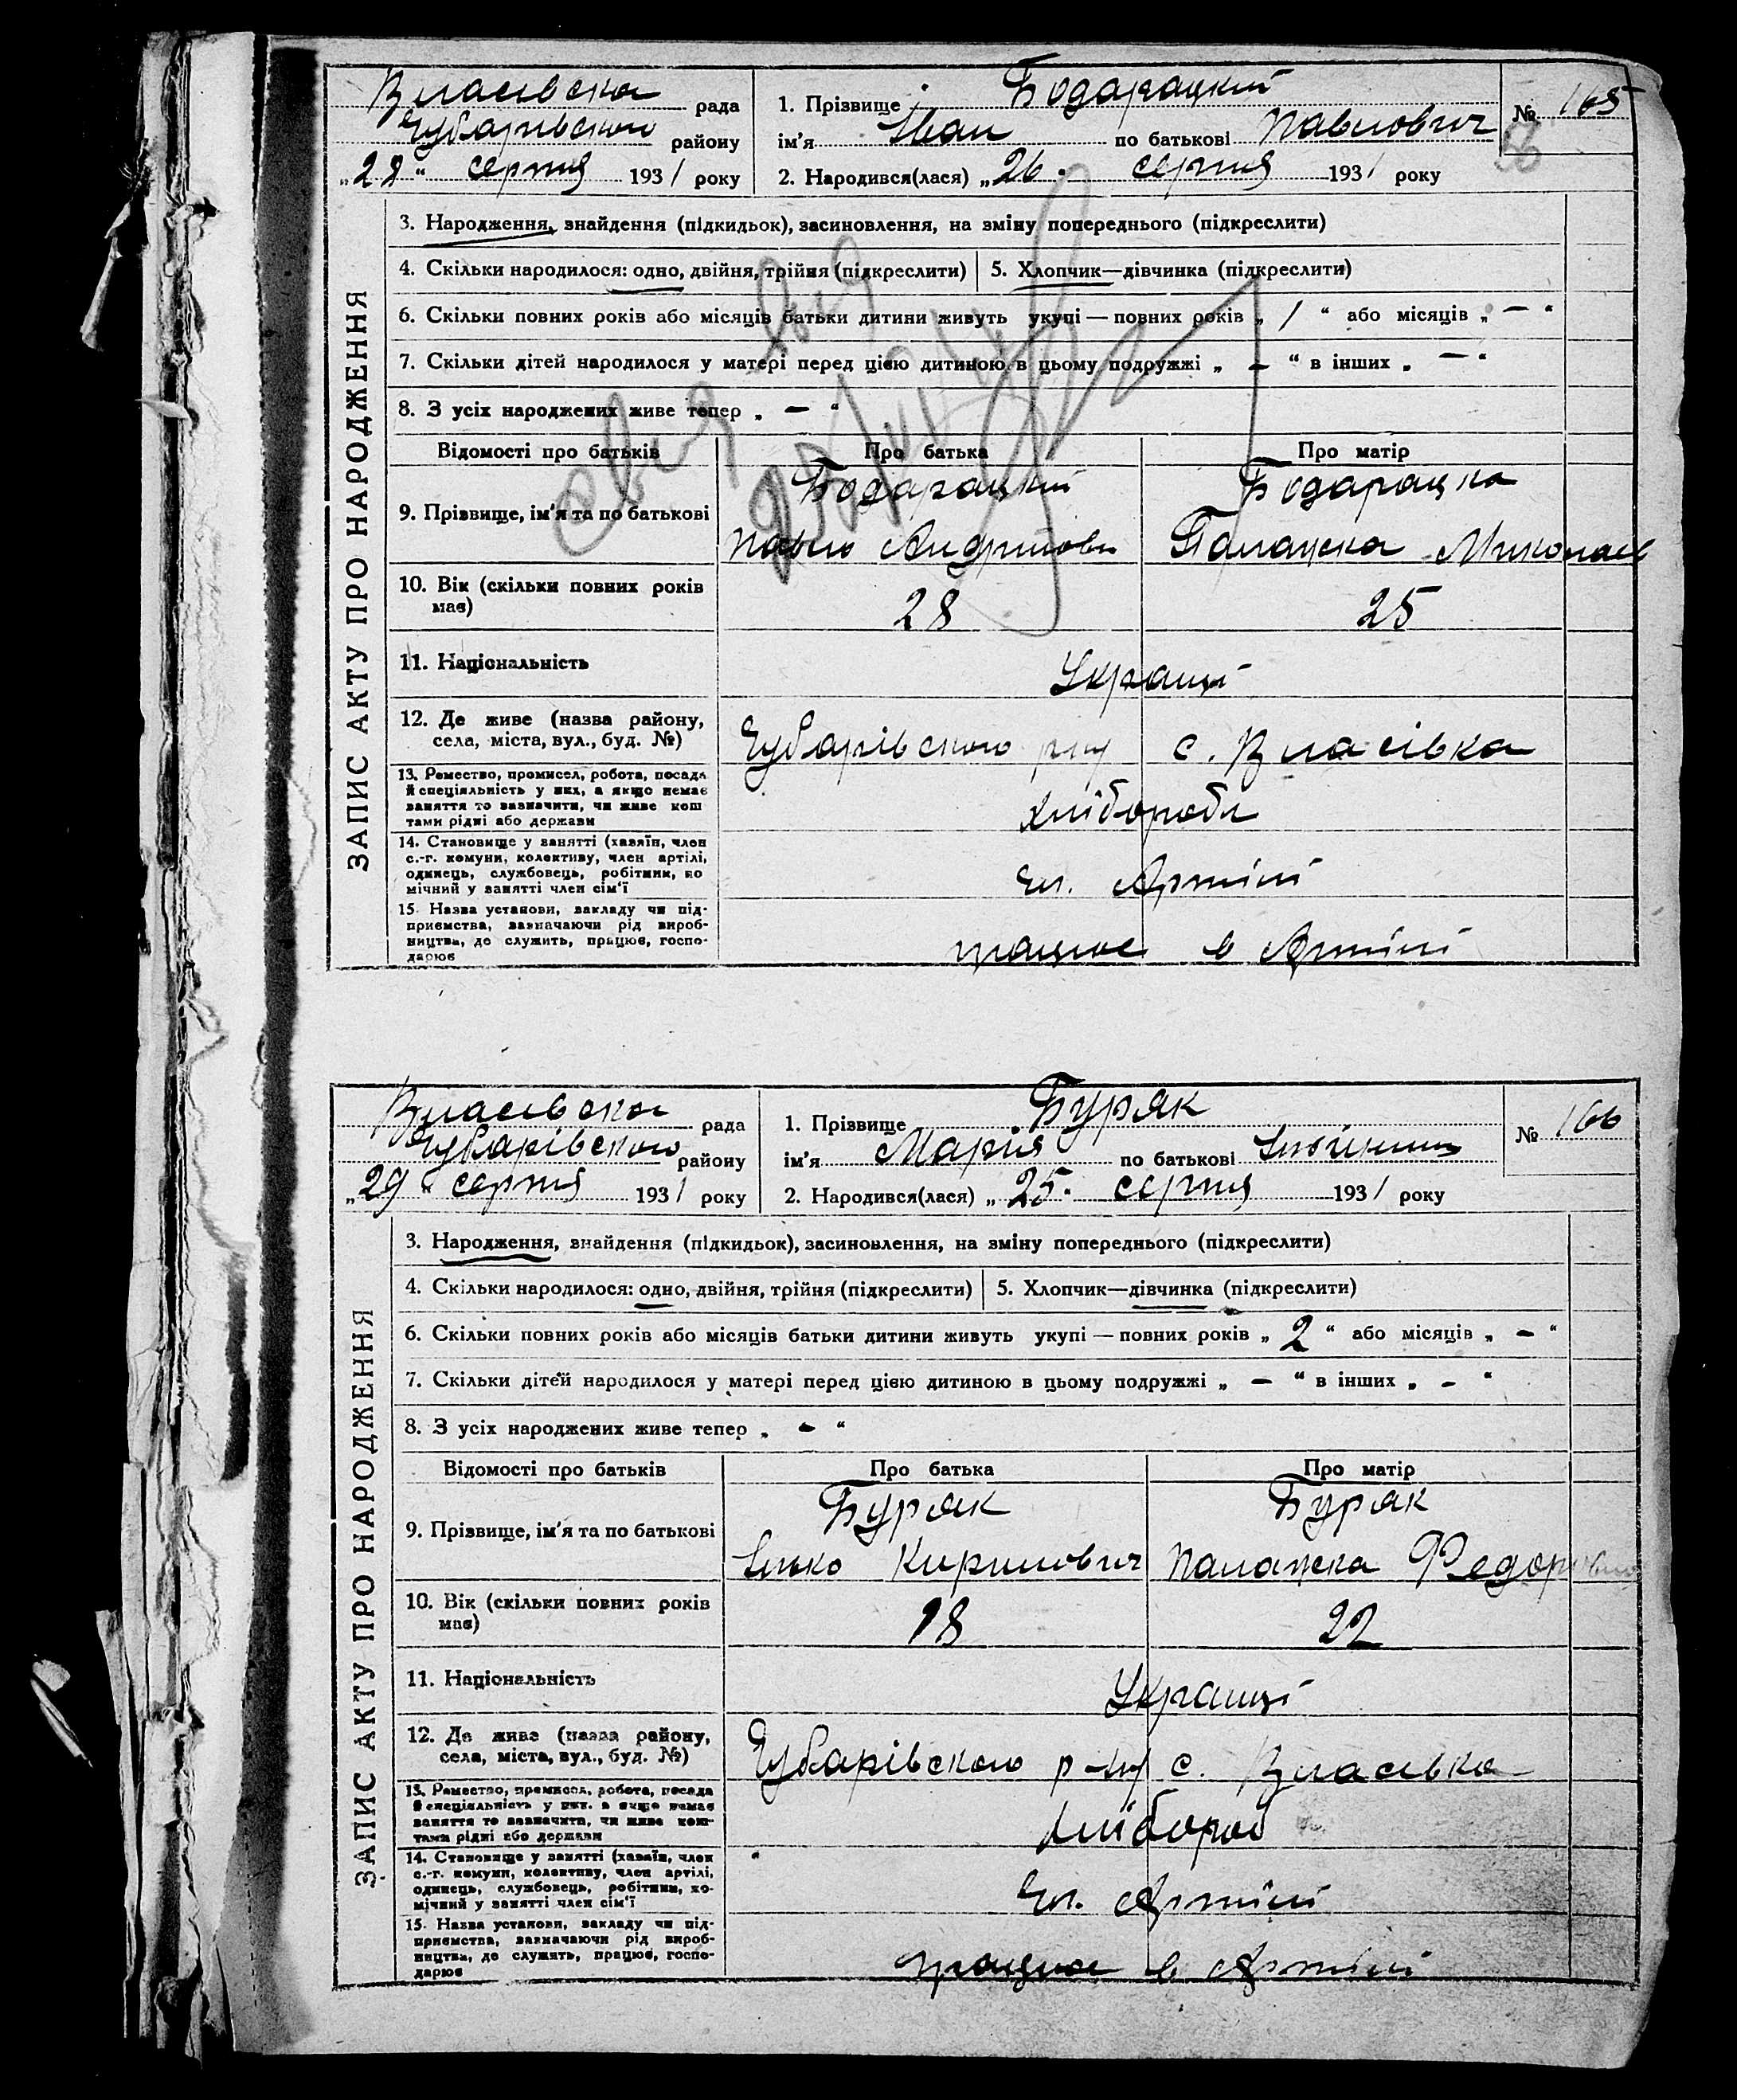 Власівска рада
Чубарівського району
„28“ серпня 1931 року
1. Прізвище Бодарацкий
ім'я Іван по батькові Павлович
2. Народився(лася) „26. серпня 1931 року
№ 165
56
ЗАПИС АКТУ ПРО НАРОДЖЕННЯ
3. Народження, знайдення (підкидьок), засиновлення, на зміну попереднього (підкреслити)
4. Скільки народилося: одно, двійня, трійня (підкреслити) 5. Хлопчик—дівчинка (підкреслити)
6. Скільки повних років або місяців батьки дитини живуть укупі — повних років „ 1 “ або місяців „ — “
7. Скільки дітей народилося у матері перед цією дитиною в цьому подружжі „ — “ в інших „ — “
8. З усіх народжених живе тепер „ — “
Відомості про батьків Про батька Про матір
9. Прізвище, ім'я та по батькові
Бодарацкий Бодарацка
Павло Андрійови Палажка Миколаєв
10. Вік (скільки повних років
має)
28 25
11. Національність
Українці
12. Де живе (назва району,
села, міста, вул., буд. №)
Чубарівського р-ну с. Власівка
13. Ремество, промисел, робота, посада
й спеціяльність у них, а якщо немає
заняття то зазначити, чи живе кош
тами рідні або держави
хлібороби
14. Становище у занятті (хазяїн, член
с.-г. комуни, колективу, член артілі,
одинець, службовець, робітник, по
мічний у занятті член сім'ї
чл. Артілі
15. Назва установи, закладу чи під-
приємства, зазначаючи рід вироб-
ництва, де служить, працює, госпо-
дарює
працює в Артілі
Власівска рада
Чубарівського району
„29“ серпня 1931 року
1. Прізвище Буряк
ім'я Марія по батькові
2. Народився(лася) „25. серпня 1931 року
№ 166
ЗАПИС АКТУ ПРО НАРОДЖЕННЯ
3. Народження, знайдення (підкидьок), засиновлення, на зміну попереднього (підкреслити)
4. Скільки народилося: одно, двійня, трійня (підкреслити) 5. Хлопчик—дівчинка (підкреслити)
6. Скільки повних років або місяців батьки дитини живуть укупі — повних років „ 2 “ або місяців „ — “
7. Скільки дітей народилося у матері перед цією дитиною в цьому подружжі „ — “ в інших „ — “
8. З усіх народжених живе тепер „ — “
Відомості про батьків Про батька Про матір
9. Прізвище, ім'я та по батькові
Буряк Буряк
Ілько Кирилович Палажка Федоровна
10. Вік (скільки повних років
має)
18 22
11. Національність
Українці
12. Де живе (назва району,
села, міста, вул., буд. №)
Чубарівського р-ну с. Власівка
13. Ремество, промисел, робота, посада
й спеціяльність у них, а якщо немає
заняття то зазначити, чи живе кош-
тами рідні або держави
хлібороб
14. Становище у занятті (хазяїн, член
с.-г. комуни, колективу, член артілі,
одинець, службовець, робітник, по-
мічний у занятті член сім'ї
чл. Артілі
15. Назва установи, закладу чи під-
приємства, зазначаючи рід вироб-
ництва, де служить, працює, госпо-
дарює
працює в Артілі